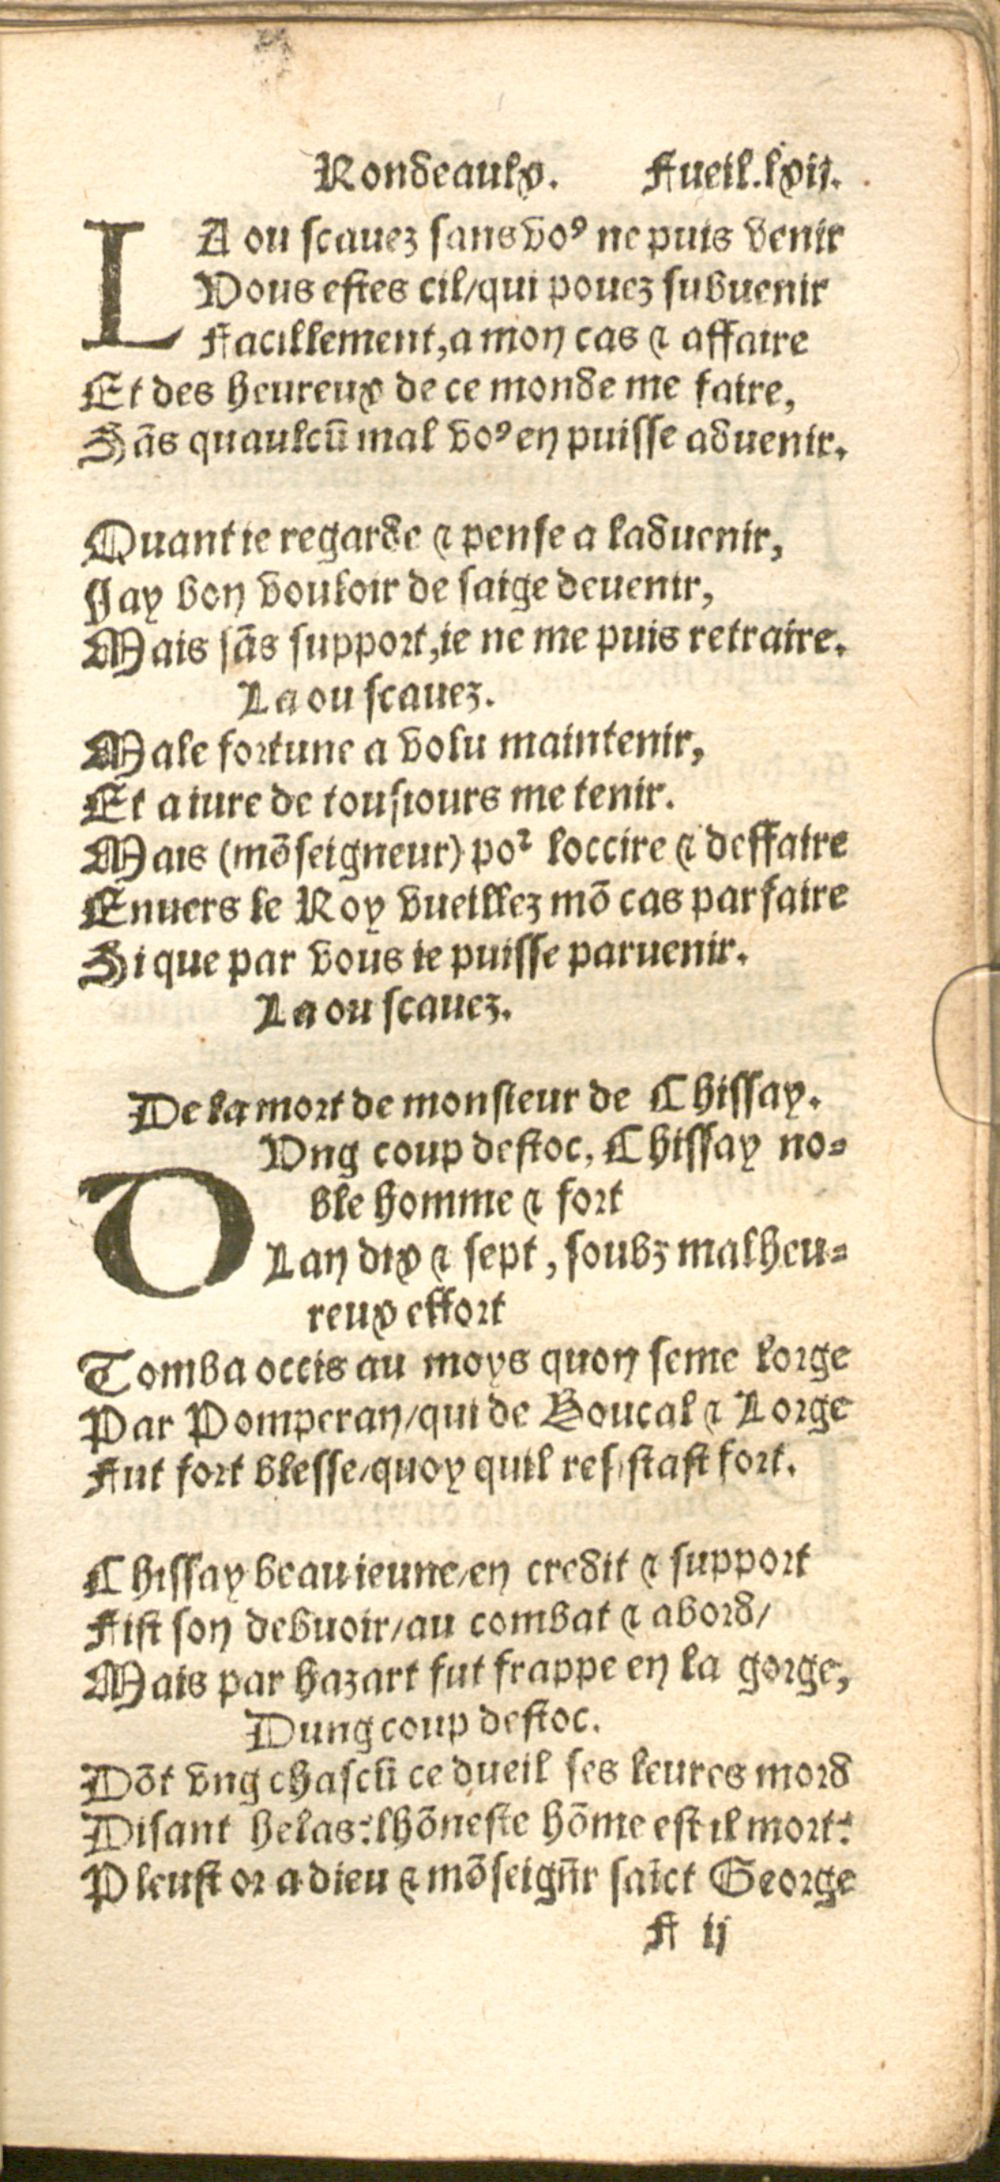 Rondeaulx. Fueil.lxij.
LA ou scauez sans voꝰ ne puis venir
Vous estes cil/qui pouez subuenir
Facillement,a mon cas ⁊ affaire
Et des heureux de ce monde me faire,
Sãs quaulcũ mal voꝰ en puisse aduenir.
Quant ie regarde ⁊ pense a laduenir,
Jay bon vouloir de saige deuenir,
Mais sãs support,ie ne me puis retraire.
La ou scauez.
Male fortune a volu maintenir,
Et a iure de tousiours me tenir.
Mais (mõseigneur) poᷣ loccire ⁊ deffaire
Enuers le Roy vueillez mõ cas parfaire
Si que par vous ie puisse paruenir.
La ou scauez.
De la mort de monsieur de Chissay.
DVng coup destoc, Chissay no-
ble homme ⁊ fort
Lan dix ⁊ sept, soubz malheu-
reux effort
Tomba occis au moys quon seme lorge
Par Pomperan/qui de Boucal ⁊ Lorge
Fut fort blesse/quoy quil resistast fort.
Chissay beau ieune/en credit ⁊ support
Fist son debuoir/au combat ⁊ abord/
Mais par hazart fut frappe en la gorge,
Dung coup destoc.
Dõt vng chascũ ce dueil ses leures mord
Disant helas:lhõneste hõme est il mort:
Pleust or a dieu ⁊ mõseigñr saĩct George
F ij